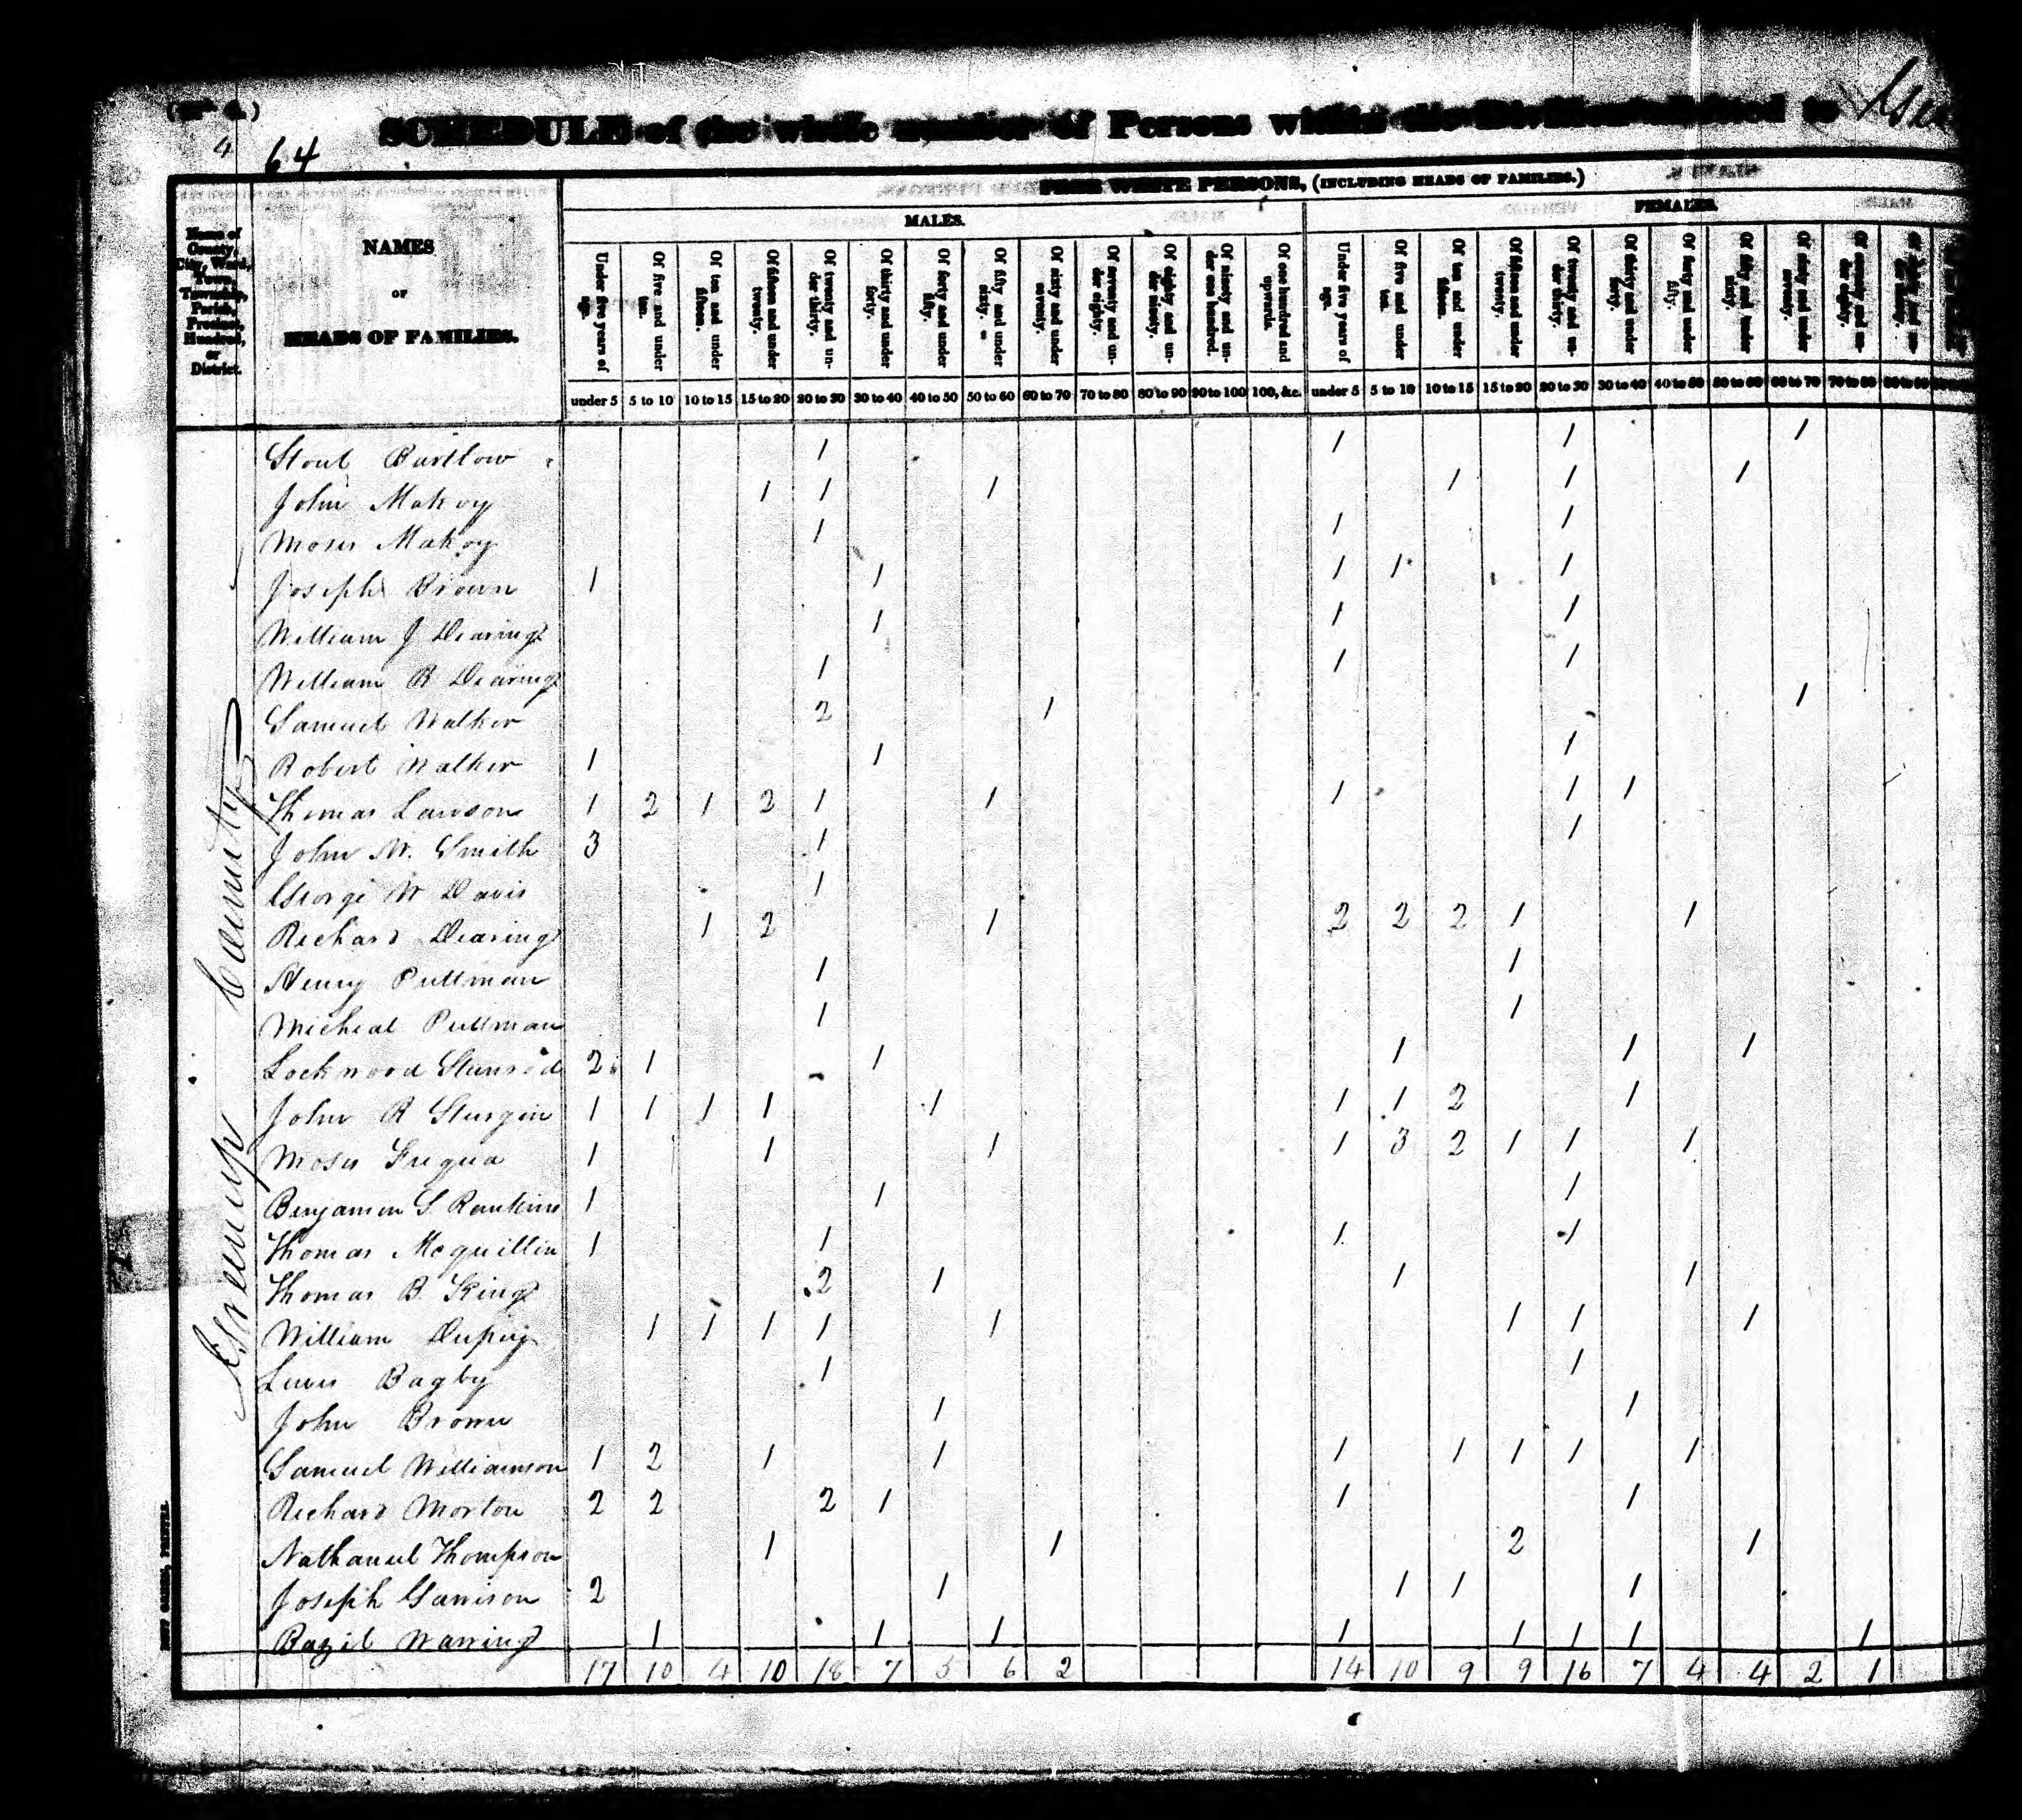 4 64
SCHEDULE of the whole number of Persons within the Division allotted to
FREE WHITE PERSONS, (INCLUDING HEADS OF FAMILIES.)
MALES. FEMALES.
Name of County, City, Ward, Town, Township, Parish, Precinct, Hundred, or District.
NAMES OF HEADS OF FAMILIES.
Under five years of age. Of five and under ten. Of ten and under fifteen. Of fifteen and under twenty. Of twenty and under thirty. Of thirty and under forty. Of forty and under fifty. Of fifty and under sixty. Of sixty and under seventy. Of seventy and under eighty. Of eighty and under ninety. Of ninety and under one hundred. Of one hundred and upwards. Under five years of age. Of five and under ten. Of ten and under fifteen. Of fifteen and under twenty. Of twenty and under thirty. Of thirty and under forty. Of forty and under fifty. Of fifty and under sixty. Of sixty and under seventy. Of seventy and under eighty.
under 5 5 to 10 10 to 15 15 to 20 20 to 30 30 to 40 40 to 50 50 to 60 60 to 70 70 to 80 80 to 90 90 to 100 100, &c. under 5 5 to 10 10 to 15 15 to 20 20 to 30 30 to 40 40 to 50 50 to 60 60 to 70 70 to 80
Greenup County
Stout Bartlow 1 1 1 1
John Makoy 1 1 1 1 1 1
Moses Makoy 1 1 1
Joseph Brown 1 1 1 1 1
William J Dearing 1 1 1
William R Dearing 1 1 1
Samuel Walker 2 1 1
Robert Walker 1 1 1
Thomas Lawson 1 2 1 2 1 1 1 1 1
John W. Smith 3 1 1
George W Davis 1
Richard Dearing 1 2 1 2 2 2 1 1
Henry Pultman 1 1
Micheal Pultman 1 1
Lockwood 2 1 1 1 1 1
John R Sturgin 1 1 1 1 1 1 1 2 1
Moses Fuqua 1 1 1 1 3 2 1 1 1
Benjamin S Rankins 1 1 1
Thomas Mcquillin 1 1 1 1
Thomas B King 2 1 1 1
William Dupuy 1 1 1 1 1 1 1 1
Lewis Bagby 1 1
John Brown 1 1
Samuel Williamson 1 2 1 1 1 1 1 1 1
Richard Morton 2 2 2 1 1 1
Nathaniel Thompson 1 1 2 1
Joseph Garrison 2 1 1 1 1
Bazil Warring 1 1 1 1 1 1 1 1
17 10 4 10 18 7 5 6 2 14 10 9 9 16 7 4 4 2 1